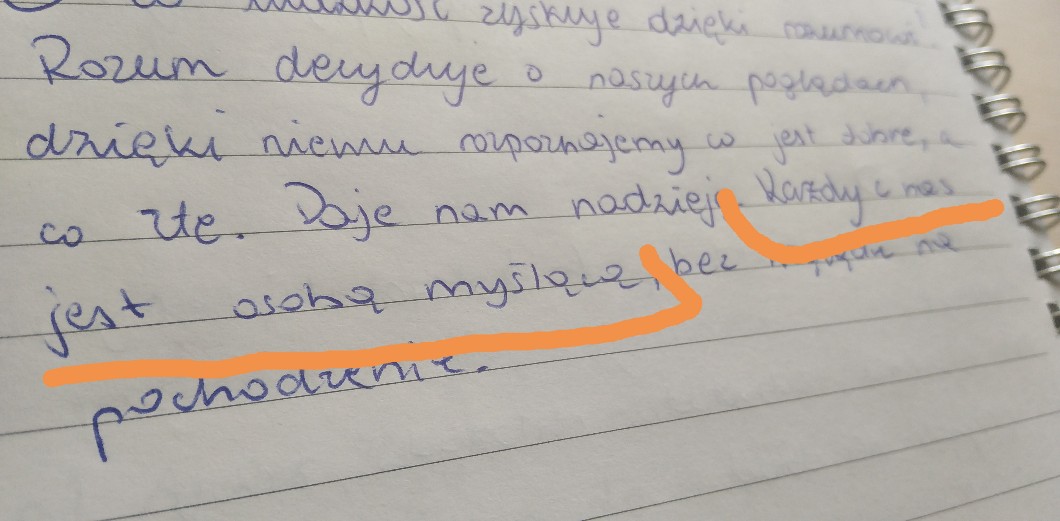 zyskuje dzięki rozumowi.
Rozum decyduje o naszych poglądach,
dzięki niemu rozpoznajemy co jest dobre, a
co złe. Daje nam nadzieję. Każdy z nas
jest osobą myślącą, bez względu na
pochodzenie.